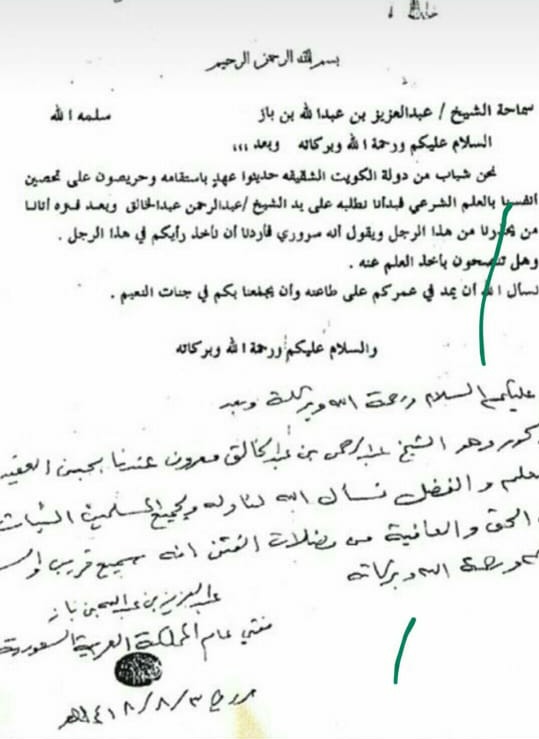 بسم الله الرحمن الرحيم
سماحة الشيخ / عبدالعزيز بن عبدالله بن باز سلمه الله
السلام عليكم ورحمة الله وبركاته وبعد ،،،
نحن شباب من دولة الكويت الشقيقه حديثوا عهد باستقامه وحريصون على تحصين
أنفسنا بالعلم الشرعي فبدأنا نطلبه على يد الشيخ /عبدالرحمن عبدالخالق وبعد فتره أتانا
من يحذرنا من هذا الرجل ويقول أنه سروري فأردنا أن نأخذ رأيكم في هذا الرجل .
وهل تنصحون بأخذ العلم عنه .
نسأل الله أن يمد في عمركم على طاعته وأن يجمعنا بكم في جنات النعيم .
والسلام عليكم ورحمة الله وبركاته
عليكم السلام ورحمة الله وبركاته وبعد
وهو الشيخ عبدالرحمن بن عبدالخالق معروف عندنا بحسن العقيد
والفضل نسأل الله لنا وله ولجميع المسلمين الثبات
الحق والعافية من مضلات الفتن انه سميع قريب
ورحمة الله وبركاته
عبدالعزيز بن عبدالله بن باز
مفتي عام المملكة العربية السعودية
١٤١٨/٨/٣هـ